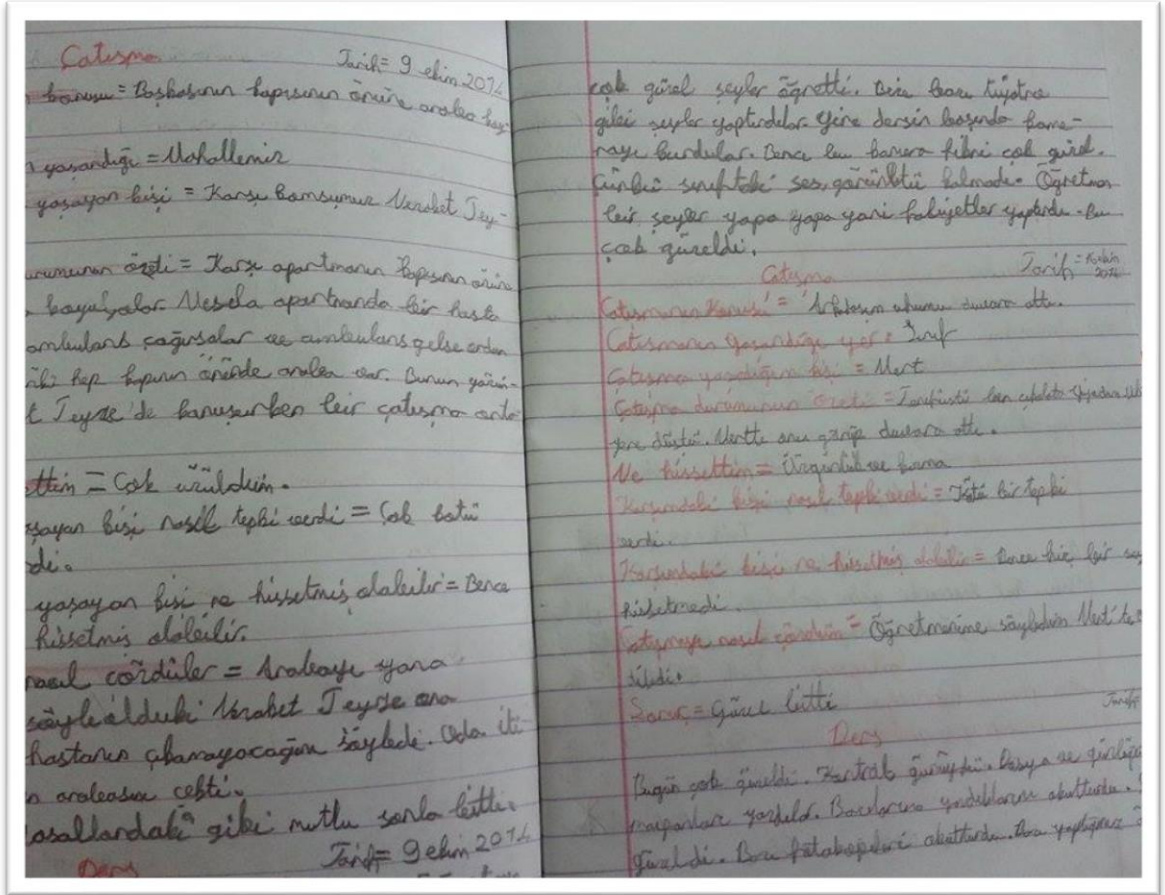 Çatışma
Tarih= 9 ekim 2014
konusu = Başkasının kapısının önüne araba koy-
yaşandığı = Mahallemiz
yaşayan kişi = Karşı komşumuz Nerabet Tey-
urumunun özeti = Karşı apartmanın kapısının önüne
koyuyolar. Mesela apartmanda bir hasta
ambulans çağırsalar ve ambulans gelse ordan
hep kapının önünde araba var. Bunun
t Teyze'de konuşurken bir çatışma
ettim = Çok üzüldüm.
şayan kişi nasıl tepki verdi = Çok kötü
di.
yaşayan kişi ne hissetmiş olabilir = Bence
hissetmiş olabilir.
nasıl çözdüler = Arabayı yana
Nerabet Teyze ona
hastanın çıkamayacağını söyledi. Oda
n arabasını cekti.
asallardaki gibi mutlu sonla bitti.
Tarih= 9 ekim 2014
Ders
çok güzel şeyler öğretti. Bize bazı tiyatro
gibi şeyler yaptırdılar. Yine dersin başında kame-
rayı kurdular. Bence bu kamera fikri çok güzel.
Çünkü sınıftaki ses, görüntü kalmadı. Öğretmen
bir şeyler yapa yapa yani faliyetler yaptırdı. Bu
çok güzeldi.
Çatışma
Tarih= 2014
Çatışmanın Konusu = duvara attı.
Çatışmanın yaşandığı yer = Sınıf
Çatışma yaşadığım kişi = Mert
Çatışma durumunun özeti =
yere düştü. Mertte onu duvara attı.
Ne hissettim = Üzgünlük ve kırma
Karşımdaki kişi nasıl tepki verdi = Kötü bir tepki
verdi.
Karşımdaki kişi ne hissetmiş olabilir = Bence hiç bir şey
hissetmedi.
Çatışmayı nasıl çözdüm = Öğretmenime söyledim Mert'te
diledi.
Sonuç = Güzel bitti
Tarih
Ders
Bugün çok güzeldi. Kontrol günüydü. Dosya ve günlüğe
yazdık. Bazılarına yazdıklarını okutturdu.
güzeldi. Bazı fotokopileri okutturdu. Bazı yaptığımız